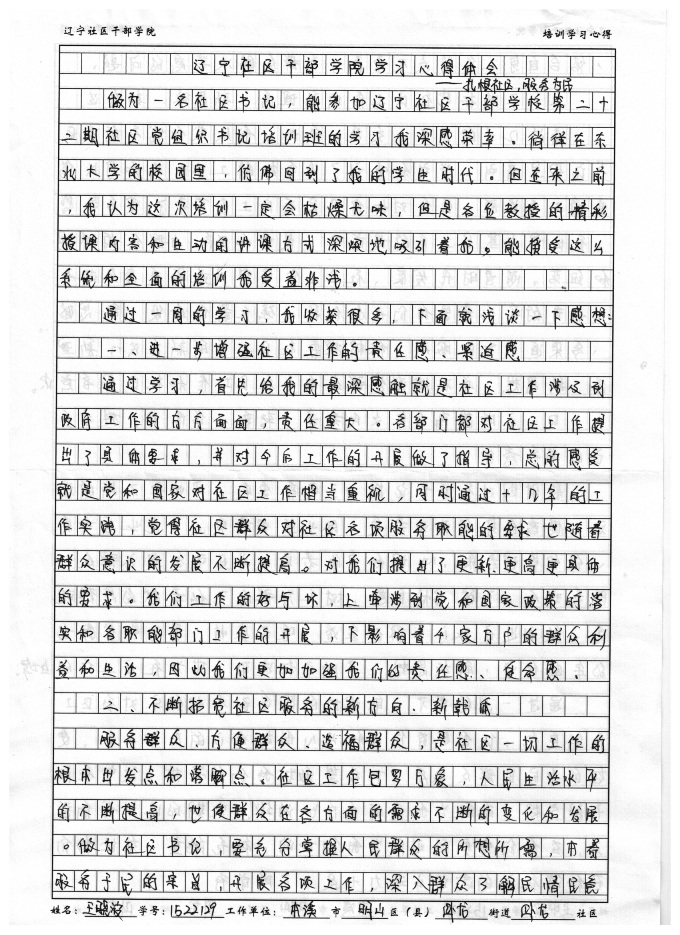 辽宁社区干部学院 培训学习心得
辽宁社区干部学院学习心得体会
——扎根社区,服务为民
做为一名社区书记,能参加辽宁社区干部学校第二十
二期社区党组织书记培训班的学习我深感荣幸。徜徉在东
北大学的校园里,仿佛回到了我的学生时代。但在来之前
,我认为这次培训一定会枯燥无味,但是各位教授的精彩
授课内容和生动的讲课方式深深地吸引着我。能接受这么
系统和全面的培训我受益非浅。
通过一周的学习,我收获很多,下面就浅谈一下感想:
一、进一步增强社区工作的责任感、紧迫感
通过学习,首先给我的最深感触就是社区工作涉及到
政府工作的方方面面,责任重大。各部门都对社区工作提
出了具体要求,并对今后工作的开展做了指导,总的感受
就是党和国家对社区工作相当重视,同时通过十几年的工
作实践,觉得社区群众对社区各项服务职能的要求也随着
群众意识的发展不断提高。对我们提出了更新、更高更具体
的要求。我们工作的好与坏,上牵涉到党和国家政策的落
实和各职能部门工作的开展,下影响着千家万户的群众利
益和生活,因此我们更加加强我们的责任感、使命感。
二、不断拓宽社区服务的新方向、新载体
服务群众、方便群众、造福群众,是社区一切工作的
根本出发点和落脚点、社区工作包罗万象,人民生活水平
的不断提高,也使群众在各方面的需求不断的变化和发展
。做为社区书记,要充分掌握人民群众的所想所需,本着
服务于民的宗旨,开展各项工作,深入群众了解民情民意
姓名:王晓波 学号:1522129 工作单位:本溪市 明山区(县) 卧龙街道 卧龙社区